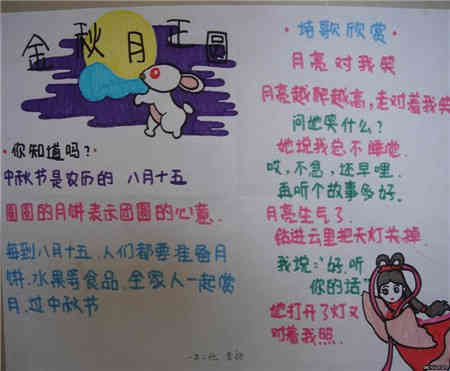 金秋月正圆
·你知道吗？·
中秋节是农历的 八月十五
圆圆的月饼表示团圆的心意.
每到八月十五.人们都要准备月
饼.水果等食品.全家人一起赏
月.过中秋节
·诗歌欣赏·
月亮对我笑
月亮越爬越高，老对着我笑
问她笑什么？
她说我总不睡觉.
哎，不急，还早哩.
再听个故事多好.
月亮生气了.
钻进云里把天灯关掉.
我说：“好.听
你的话”
她打开了灯又
对着我照.